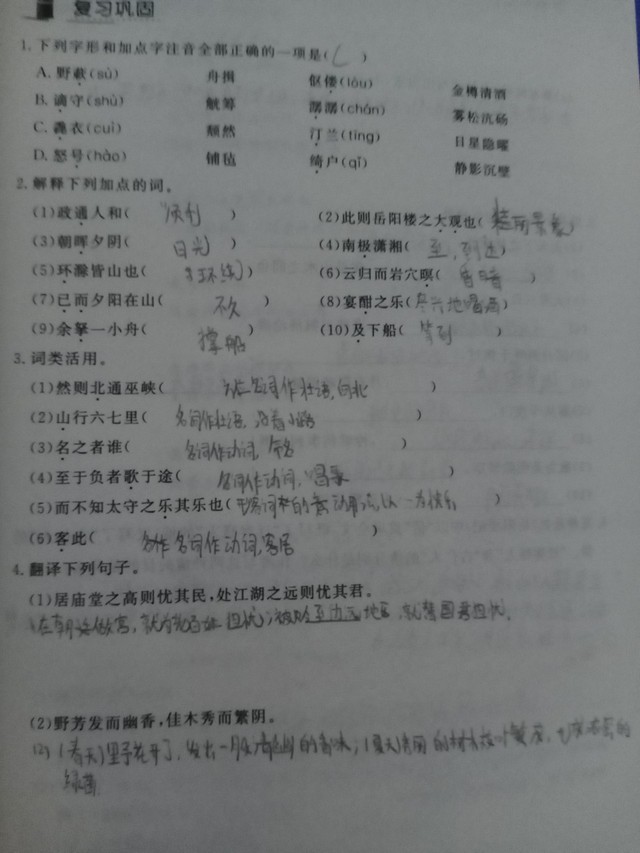 复习巩固
1.下列字形和加点字注音全部正确的一项是( )
A.野蔌(sù) 舟揖 伛偻(lóu) 金樽清酒
B.谪守(shù) 觥筹 潺潺(chán) 雾松沆砀
C.蓑衣(cuī) 颓然 汀兰(tīng) 日星隐曜
D.怒号(hào) 铺毡 绮户(qǐ) 静影沉璧
2.解释下列加点的词。
(1)政通人和( 顺利 ) (2)此则岳阳楼之大观也( 壮丽景象
(3)朝晖夕阴( 日光 ) (4)南极潇湘( 至,到达
(5)环滁皆山也( 环绕 ) (6)云归而岩穴暝( 昏暗 )
(7)已而夕阳在山( 不久 ) (8)宴酣之乐(
(9)余拏一小舟( 撑船 ) (10)及下船( 等到 )
3.词类活用。
(1)然则北通巫峡( 名词作状语,向北 )
(2)山行六七里( 名词作状语,沿着小路
(3)名之者谁( 名词作动词,命名 )
(4)至于负者歌于途( 名词作动词,唱歌
(5)而不知太守之乐其乐也( 形容词的意动用法,以…为快乐 )
(6)客此( 名词作动词,客居 )
4.翻译下列句子。
(1)居庙堂之高则忧其民,处江湖之远则忧其君。
在朝廷做官,就为百姓担忧;边远地区,就替国君担忧.
(2)野芳发而幽香,佳木秀而繁阴。
(2)(春天)野花开了,发出一股清幽的香味;(夏天)的树木枝叶繁茂,成浓密的
绿荫